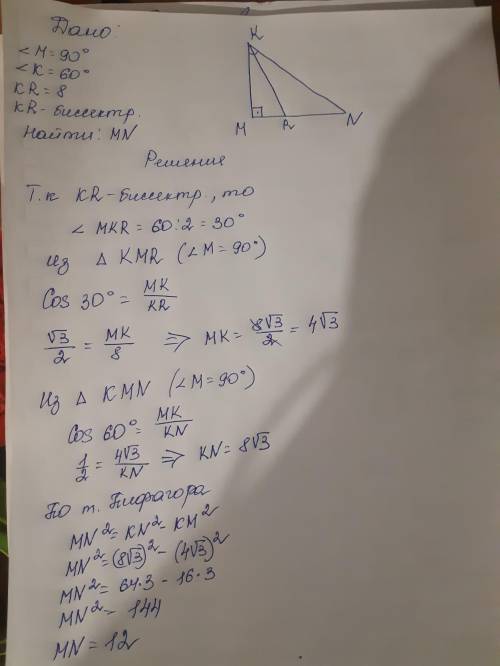 Дано:
∠M = 90°
∠K = 60°
KR = 8
KR - биссектр.
Найти: MN
K
M
R
N
Решение
Т.к KR - биссектр., то
∠ MKR = 60:2 = 30°
Из △ KMR (∠M = 90°)
Cos 30° = MK/KR
√3/2 = MK/8 ⇒ MK = 8√3/2 = 4√3
Из △ KMN (∠M = 90°)
Cos 60° = MK/KN
1/2 = 4√3/KN ⇒ KN = 8√3
По т. Пифагора
MN² = KN² - KM²
MN² = (8√3)² - (4√3)²
MN² = 64·3 - 16·3
MN² = 144
MN = 12